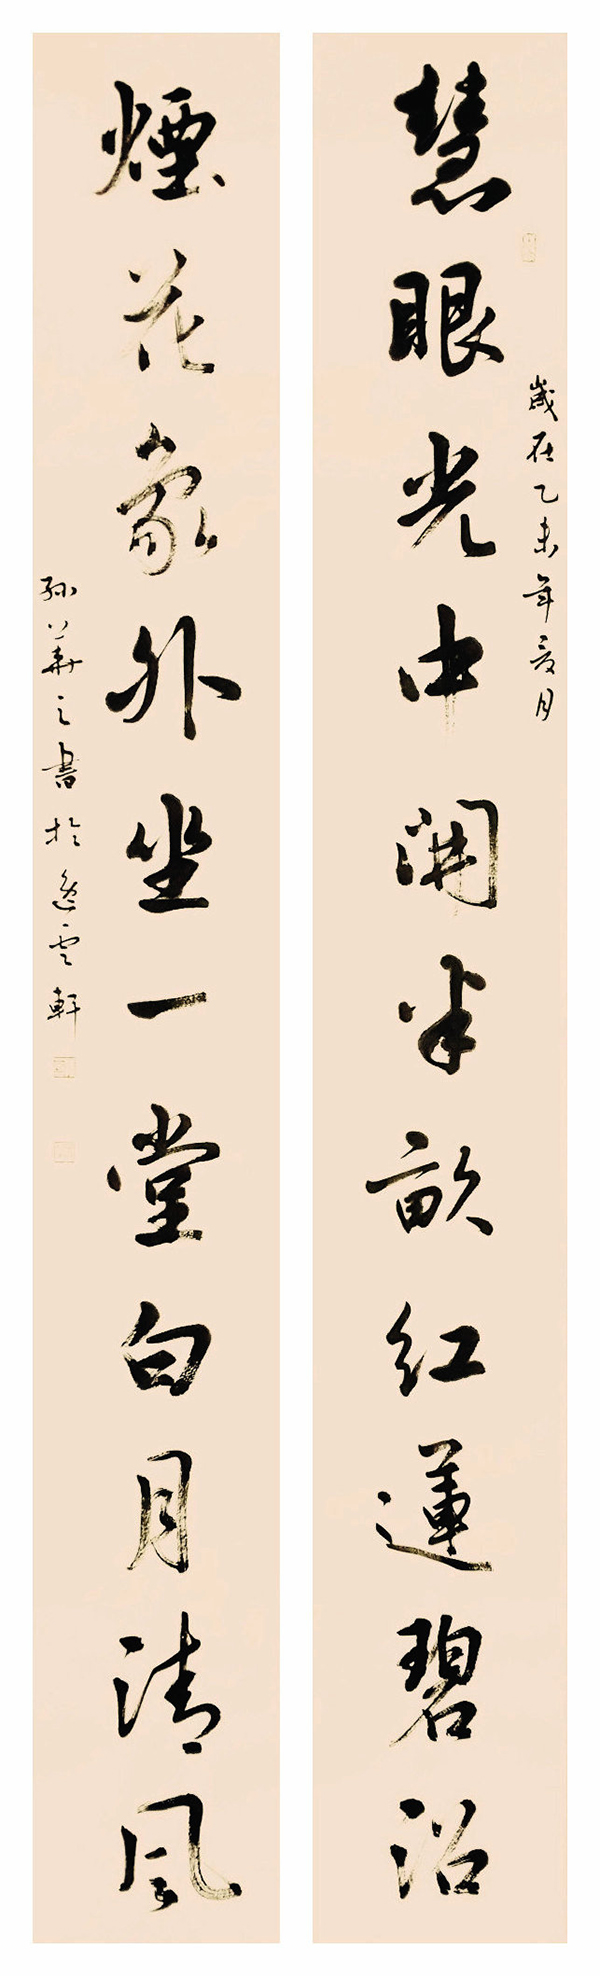 慧眼光中開半畝红蓮碧沼
歲在乙未年夏月
煙花象外坐一堂白月清風
孙華之書於逸雲軒